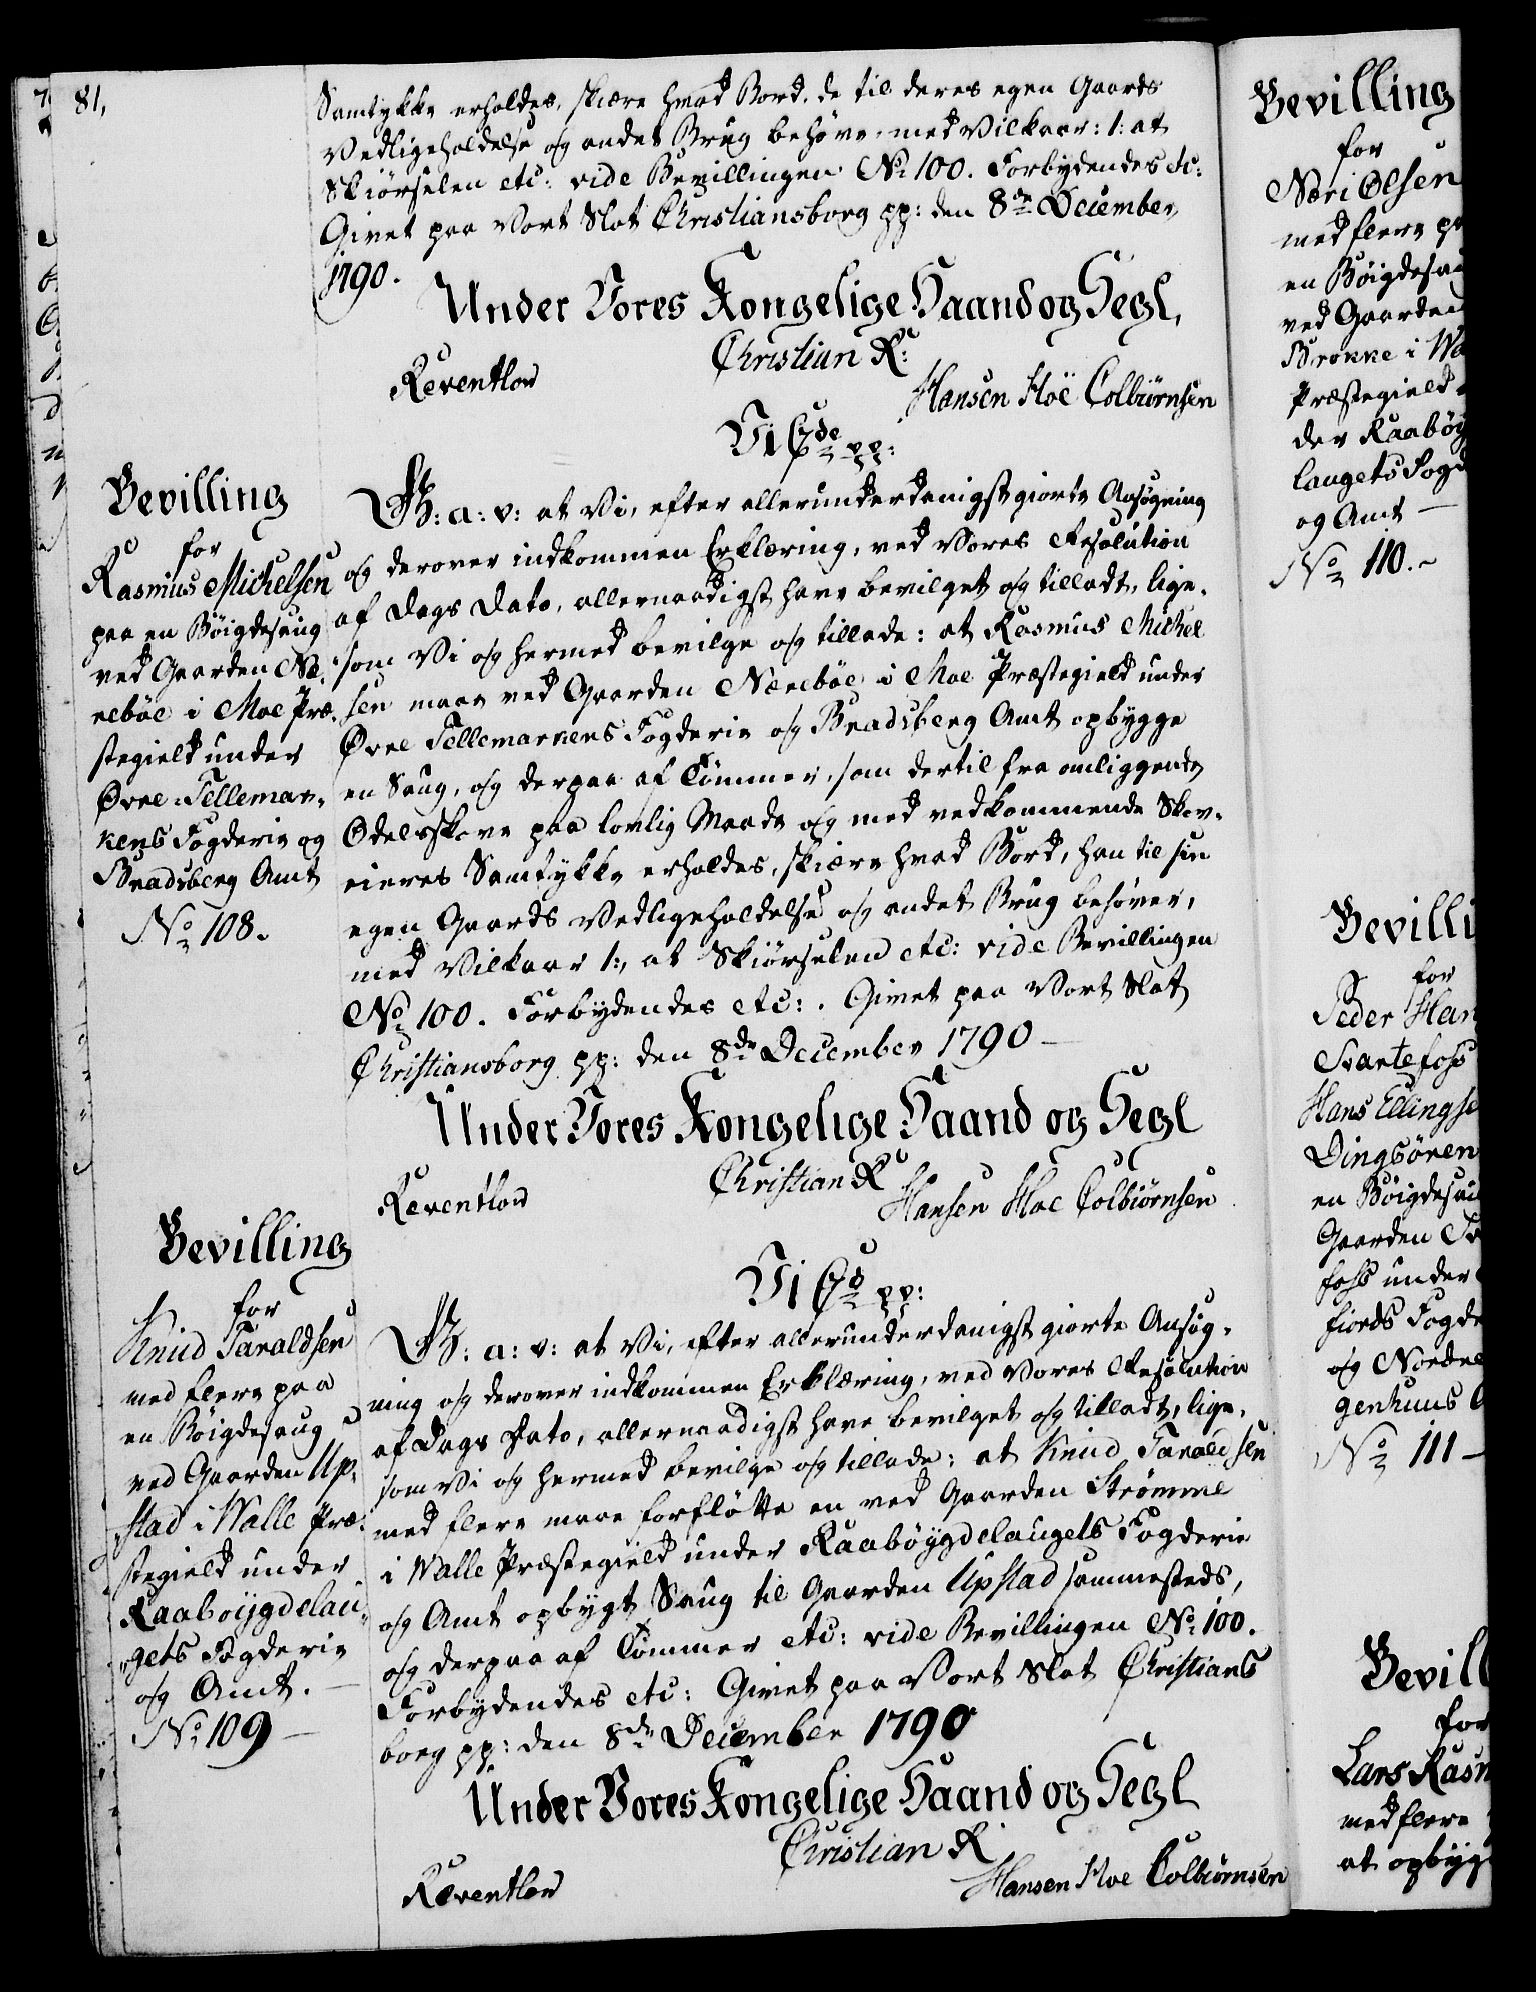 81,
Samtykke erholdes, skiære hvad Bord, de til deres egen Gaards
Vedligeholdelse og andet Brug behöve, med Vilkaar: 1: at
Skiörselen etc: vide Bevillingen No 100. Forbydendes etc:
Givet paa Vort Slot Christiansborg pp: den 8de December
1790.
Under Vores Kongelige Haand og Segl,
Christian R:
Reventlow
Hansen Hoë Colbiörnsen
Vi C 7de pp:
Bevilling
for
Rasmus Michelsen
paa en Böigdesaug
ved Gaarden Næ-
reböe i Moe Præ-
stegield under
Øvre-Tellemar-
kens Fogderie og
Bradsberg Amt
No 108.
G: a: v: at Vi, efter allerunderdanigst giorte Ansøgning
og derover indkommen Erklæring, ved Vores Resolution
af Dags Dato, allernaadigst have bevilget og tilladt, lige-
som Vi og hermed bevilge og tillade: at Rasmus Michel
sen maae ved Gaarden Nærebøe i Moe Præstegield under
Øvre Tellemarkens Fogderie og Bradsberg Amt opbygge
en Saug, og derpaa af Tömmer, som dertil fra omliggende
Odelsskove paa lovlig Maade og med vedkommende Skov-
eieres Samtykke erholdes, skiære hvad Bord, han til sin
egen Gaards Vedligeholdelse og andet Brug behöver,
med Vilkaar 1:, at Skiörselen etc: vide Bevillingen
No 100. Forbydendes etc:. Givet paa Vort Slot
Christiansborg pp: den 8de December 1790 —
Under Vores Kongelige Haand og Segl
Christian R
Reventlow
Hansen Hoe Colbiörnsen
Vi C 7d pp:
Bevilling
for
Knud Taraldsen
med flere paa
en Böigdesaug
ved Gaarden Up-
stad i Walle Præ-
stegield under
Raaboijgdelau-
gets Fogderie
og Amt. —
No 109 —
G: a: v: at Vi, efter allerunderdanigst giorte Ansøg-
ning og derover indkommen Erklæring, ved Vores Resolution
af Dags Dato, allernaadigst have bevilget og tilladt, lige-
som Vi og hermed bevilge og tillade: at Knud Taraldsen
med flere maae forflötte en ved Gaarden Strømme
i Walle Præstegield under Raaböygdelaugets Fogderie
og Amt opbygt Saug til Gaarden Upstad sammesteds,
og derpaa af Tömmer etc: vide Bevillingen No 100.
Forbydendes etc: Givet paa Vort Slot Christians
borg pp: den 8de December 1790
Under Vores Kongelige Haand og Segl
Christian R
Reventlow
Hansen Hoe Colbiörnsen
Bevilling
for
Neri Olsen
med flere
en Böigdesau
ved Gaarden
Brokke i Wa
Præstegield
der Raaböy
laugets Fogd
og Amt —
No 110. ~
Bevilli
for
Peder Han
Svartefoss
Hans Ellingse
Dingsören
en Böigdesau
Gaarden Sv
foss under
fiords Fogde
og Nordre
genhuus
No 111 —
Bevill
for
Lars Rasm
med flere
at opbyg